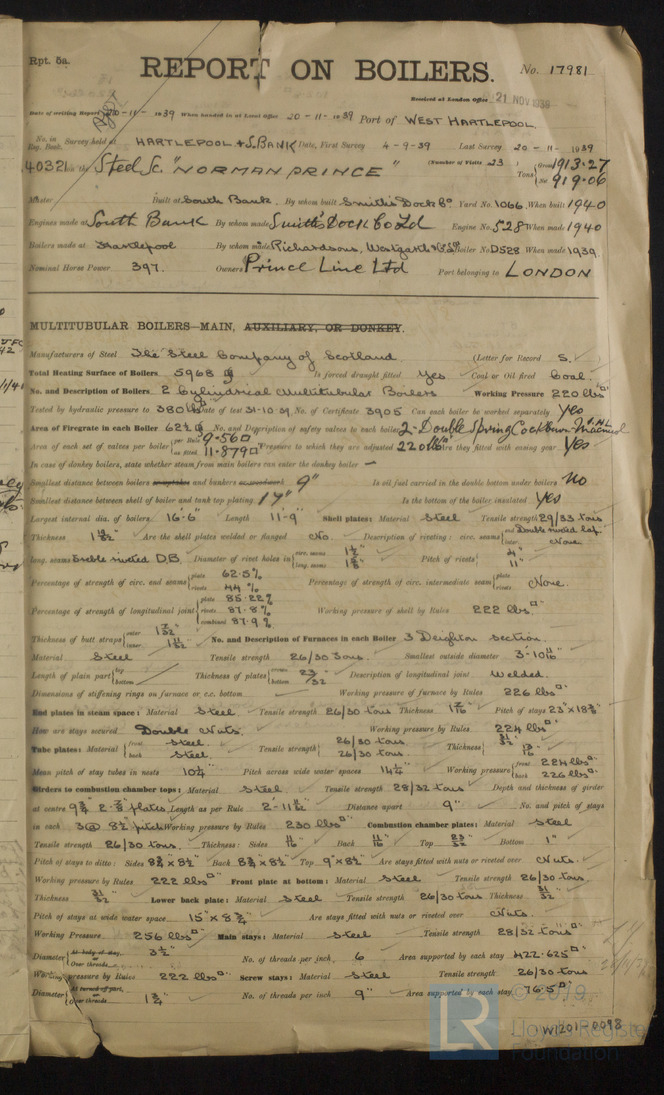 Rpt. 5a.
REPORT ON BOILERS.
No. 17981
Received at London Office 21 NOV 1939
Date of writing Report 20-11-1939 When handed in at Local Office 20-11-1939 Port of WEST HARTLEPOOL.
No. in Reg. Book. Survey held at HARTLEPOOL & S. BANK Date, First Survey 4-9-39 Last Survey 20-11-1939
40321 on the Steel Sc. "NORMAN PRINCE" (Number of Visits 23) Tons Gross 1913.27 Net 919.06
Master Built at South Bank. By whom built Smith's Dock Co. Yard No. 1066 When built 1940
Engines made at South Bank By whom made Smith's Dock Co Ld Engine No. 528 When made 1940
Boilers made at Hartlepool By whom made Richardsons, Westgarth & Co Ld Boiler No. D528 When made 1939.
Nominal Horse Power 397. Owners Prince Line Ltd Port belonging to LONDON
MULTITUBULAR BOILERS—MAIN, AUXILIARY, OR DONKEY.
Manufacturers of Steel The Steel Company of Scotland. (Letter for Record S.)
Total Heating Surface of Boilers 5968 Is forced draught fitted Yes. Coal or Oil fired Coal.
No. and Description of Boilers 2 Cylindrical Multitubular Boilers Working Pressure 220 lbs
Tested by hydraulic pressure to 380 lbs Date of test 31-10-39. No. of Certificate 3905 Can each boiler be worked separately Yes
Area of Firegrate in each Boiler 62½ No. and Description of safety valves to each boiler 2-Double Spring Cockburn
Area of each set of valves per boiler per Rule 9.56 as fitted 11.879 Pressure to which they are adjusted 220 lbs Are they fitted with easing gear Yes
In case of donkey boilers, state whether steam from main boilers can enter the donkey boiler —
Smallest distance between boilers or uptakes and bunkers or woodwork 9" Is oil fuel carried in the double bottom under boilers No
Smallest distance between shell of boiler and tank top plating 17" Is the bottom of the boiler insulated Yes
Largest internal dia. of boilers 16'-6" Length 11'-9" Shell plates: Material Steel Tensile strength 29/33 tons
Thickness Are the shell plates welded or flanged No. Description of riveting: circ. seams end Double riveted lap. inter. None
long. seams Treble riveted D.B. Diameter of rivet holes in circ. seams long. seams Pitch of rivets 4" 11"
Percentage of strength of circ. end seams plate 62.5% rivets 44% Percentage of strength of circ. intermediate seam plate rivets None.
Percentage of strength of longitudinal joint plate 85.22% rivets 87.8% combined 87.9% Working pressure of shell by Rules 222 lbs
Thickness of butt straps outer inner No. and Description of Furnaces in each Boiler 3 Deighton section.
Material Steel Tensile strength 26/30 Tons. Smallest outside diameter
Length of plain part top bottom Thickness of plates crown bottom 23/32" Description of longitudinal joint Welded.
Dimensions of stiffening rings on furnace or c.c. bottom Working pressure of furnace by Rules 226 lbs
End plates in steam space: Material Steel Tensile strength 26/30 tons Thickness Pitch of stays
How are stays secured Double Nuts. Working pressure by Rules 224 lbs
Tube plates: Material front Steel. back Steel. Tensile strength 26/30 tons. 26/30 tons. Thickness 31/32"
Mean pitch of stay tubes in nests 10¼" Pitch across wide water spaces 14¼" Working pressure front 224 lbs back 226 lbs
Girders to combustion chamber tops: Material Steel Tensile strength 28/32 tons Depth and thickness of girder
at centre Length as per Rule Distance apart 9" No. and pitch of stays
in each 3 @ 8½ pitch Working pressure by Rules 230 lbs Combustion chamber plates: Material Steel
Tensile strength 26/30 tons. Thickness: Sides 11/16" Back 11/16" Top 23/32" Bottom 1"
Pitch of stays to ditto: Sides 8¾" x 8½" Back 8¾" x 8½" Top 9" x 8½" Are stays fitted with nuts or riveted over Nuts.
Working pressure by Rules 222 lbs Front plate at bottom: Material Steel Tensile strength 26/30 tons.
Thickness 31/32" Lower back plate: Material Steel Tensile strength 26/30 tons Thickness 31/32"
Pitch of stays at wide water space 15" x 8¾" Are stays fitted with nuts or riveted over Nuts.
Working Pressure 256 lbs Main stays: Material Steel Tensile strength 28/32 tons
Diameter At body of stay, or Over threads 3½" No. of threads per inch, 6 Area supported by each stay 422.625
Working pressure by Rules 222 lbs Screw stays: Material Steel Tensile strength 26/30 tons
Diameter At turned off part, or Over threads 1¾" No. of threads per inch 9" Area supported by each stay 76.5
© 2019
LR Lloyd's Register Foundation
W1201-0098